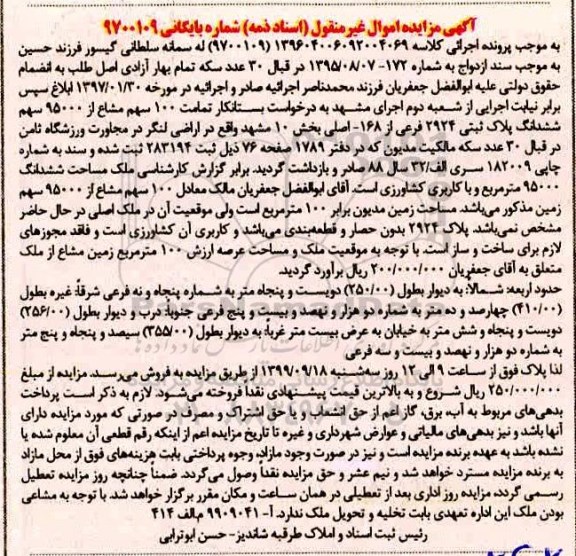 آگهی مزایده اموال غیرمنقول (اسناد ذمه) شماره بایگانی ۹۷۰۰۱۰۹
به موجب پرونده اجرائی کلاسه ۱۳۹۶۰۴۰۰۶۰۹۲۰۰۴۰۶۹ (۹۷۰۰۱۰۹) له سمانه سلطانی گیسور فرزند حسین
به موجب سند ازدواج به شماره ۱۷۲- ۱۳۹۵/۰۸/۰۷ در قبال ۳۰ عدد سکه تمام بهار آزادی اصل طلب به انضمام
حقوق دولتی علیه ابوالفضل جعفریان فرزند محمدناصر اجرائیه صادر و اجرائیه در مورخه ۱۳۹۷/۰۱/۳۰ ابلاغ سپس
برابر نیابت اجرایی از شعبه دوم اجرای مشهد به درخواست بستانکار تمامت ۱۰۰ سهم مشاع از ۹۵۰۰۰ سهم
ششدانگ پلاک ثبتی ۲۹۲۴ فرعی از ۱۶۸- اصلی بخش ۱۰ مشهد واقع در اراضی لنگر در مجاورت ورزشگاه ثامن
در قبال ۳۰ عدد سکه مالکیت مدیون که در دفتر ۱۷۸۹ صفحه ۷۶ ذیل ثبت ۲۸۳۱۹۴ ثبت شده و سند به شماره
چاپی ۱۸۲۰۰۹ سری الف/۳۲ سال ۸۸ صادر و بازداشت گردید. برابر گزارش کارشناسی ملک مساحت ششدانگ
۹۵۰۰۰ مترمربع و با کاربری کشاورزی است. آقای ابوالفضل جعفریان مالک معادل ۱۰۰ سهم مشاع از ۹۵۰۰۰ سهم
زمین مذکور می‌باشد. مساحت زمین مدیون برابر ۱۰۰ مترمربع است ولی موقعیت آن در ملک اصلی در حال حاضر
مشخص نمی‌باشد. پلاک ۲۹۲۴ بدون حصار و قطعه‌بندی می‌باشد و کاربری آن کشاورزی است و فاقد مجوزهای
لازم برای ساخت و ساز است. با توجه به موقعیت ملک و مساحت عرصه ارزش ۱۰۰ مترمربع زمین مشاع از ملک
متعلق به آقای جعفریان ۲۰۰/۰۰۰/۰۰۰ ریال برآورد گردید.
حدود اربعه: شمالاً: به دیوار بطول (۲۵۰/۰۰) دویست و پنجاه متر به شماره پنجاه و نه فرعی شرقاً: غیره بطول
(۴۱۰/۰۰) چهارصد و ده متر به شماره دو هزار و نهصد و بیست و پنج فرعی جنوباً: درب و دیوار بطول (۲۵۶/۰۰)
دویست و پنجاه و شش متر به خیابان به عرض بیست متر غرباً: به دیوار بطول (۳۵۵/۰۰) سیصد و پنجاه و پنج متر
به شماره دو هزار و نهصد و بیست و سه فرعی
لذا پلاک فوق از ساعت ۹ الی ۱۲ روز سه‌شنبه ۱۳۹۹/۰۹/۱۸ از طریق مزایده به فروش می‌رسد. مزایده از مبلغ
۲۵۰/۰۰۰/۰۰۰ ریال شروع و به بالاترین قیمت پیشنهادی نقداً فروخته می‌شود. لازم به ذکر است پرداخت
بدهی‌های مربوط به آب، برق، گاز اعم از حق انشعاب و یا حق اشتراک و مصرف در صورتی که مورد مزایده دارای
آنها باشد و نیز بدهی‌های مالیاتی و عوارض شهرداری و غیره تا تاریخ مزایده اعم از اینکه رقم قطعی آن معلوم شده یا
نشده باشد به عهده برنده مزایده است و نیز در صورت وجود مازاد، وجوه پرداختی بابت هزینه‌های فوق از محل مازاد
به برنده مزایده مسترد خواهد شد و نیم عشر و حق مزایده نقداً وصول می‌گردد. ضمناً چنانچه روز مزایده تعطیل
رسمی گردد، مزایده روز اداری بعد از تعطیلی در همان ساعت و مکان مقرر برگزار خواهد شد. با توجه به مشاعی
بودن ملک این اداره تعهدی بابت تخلیه و تحویل ملک ندارد. آ- ۹۹۰۹۰۴۱ م‌الف ۴۱۴
رئیس ثبت اسناد و املاک طرقبه شاندیز- حسن ابوترابی